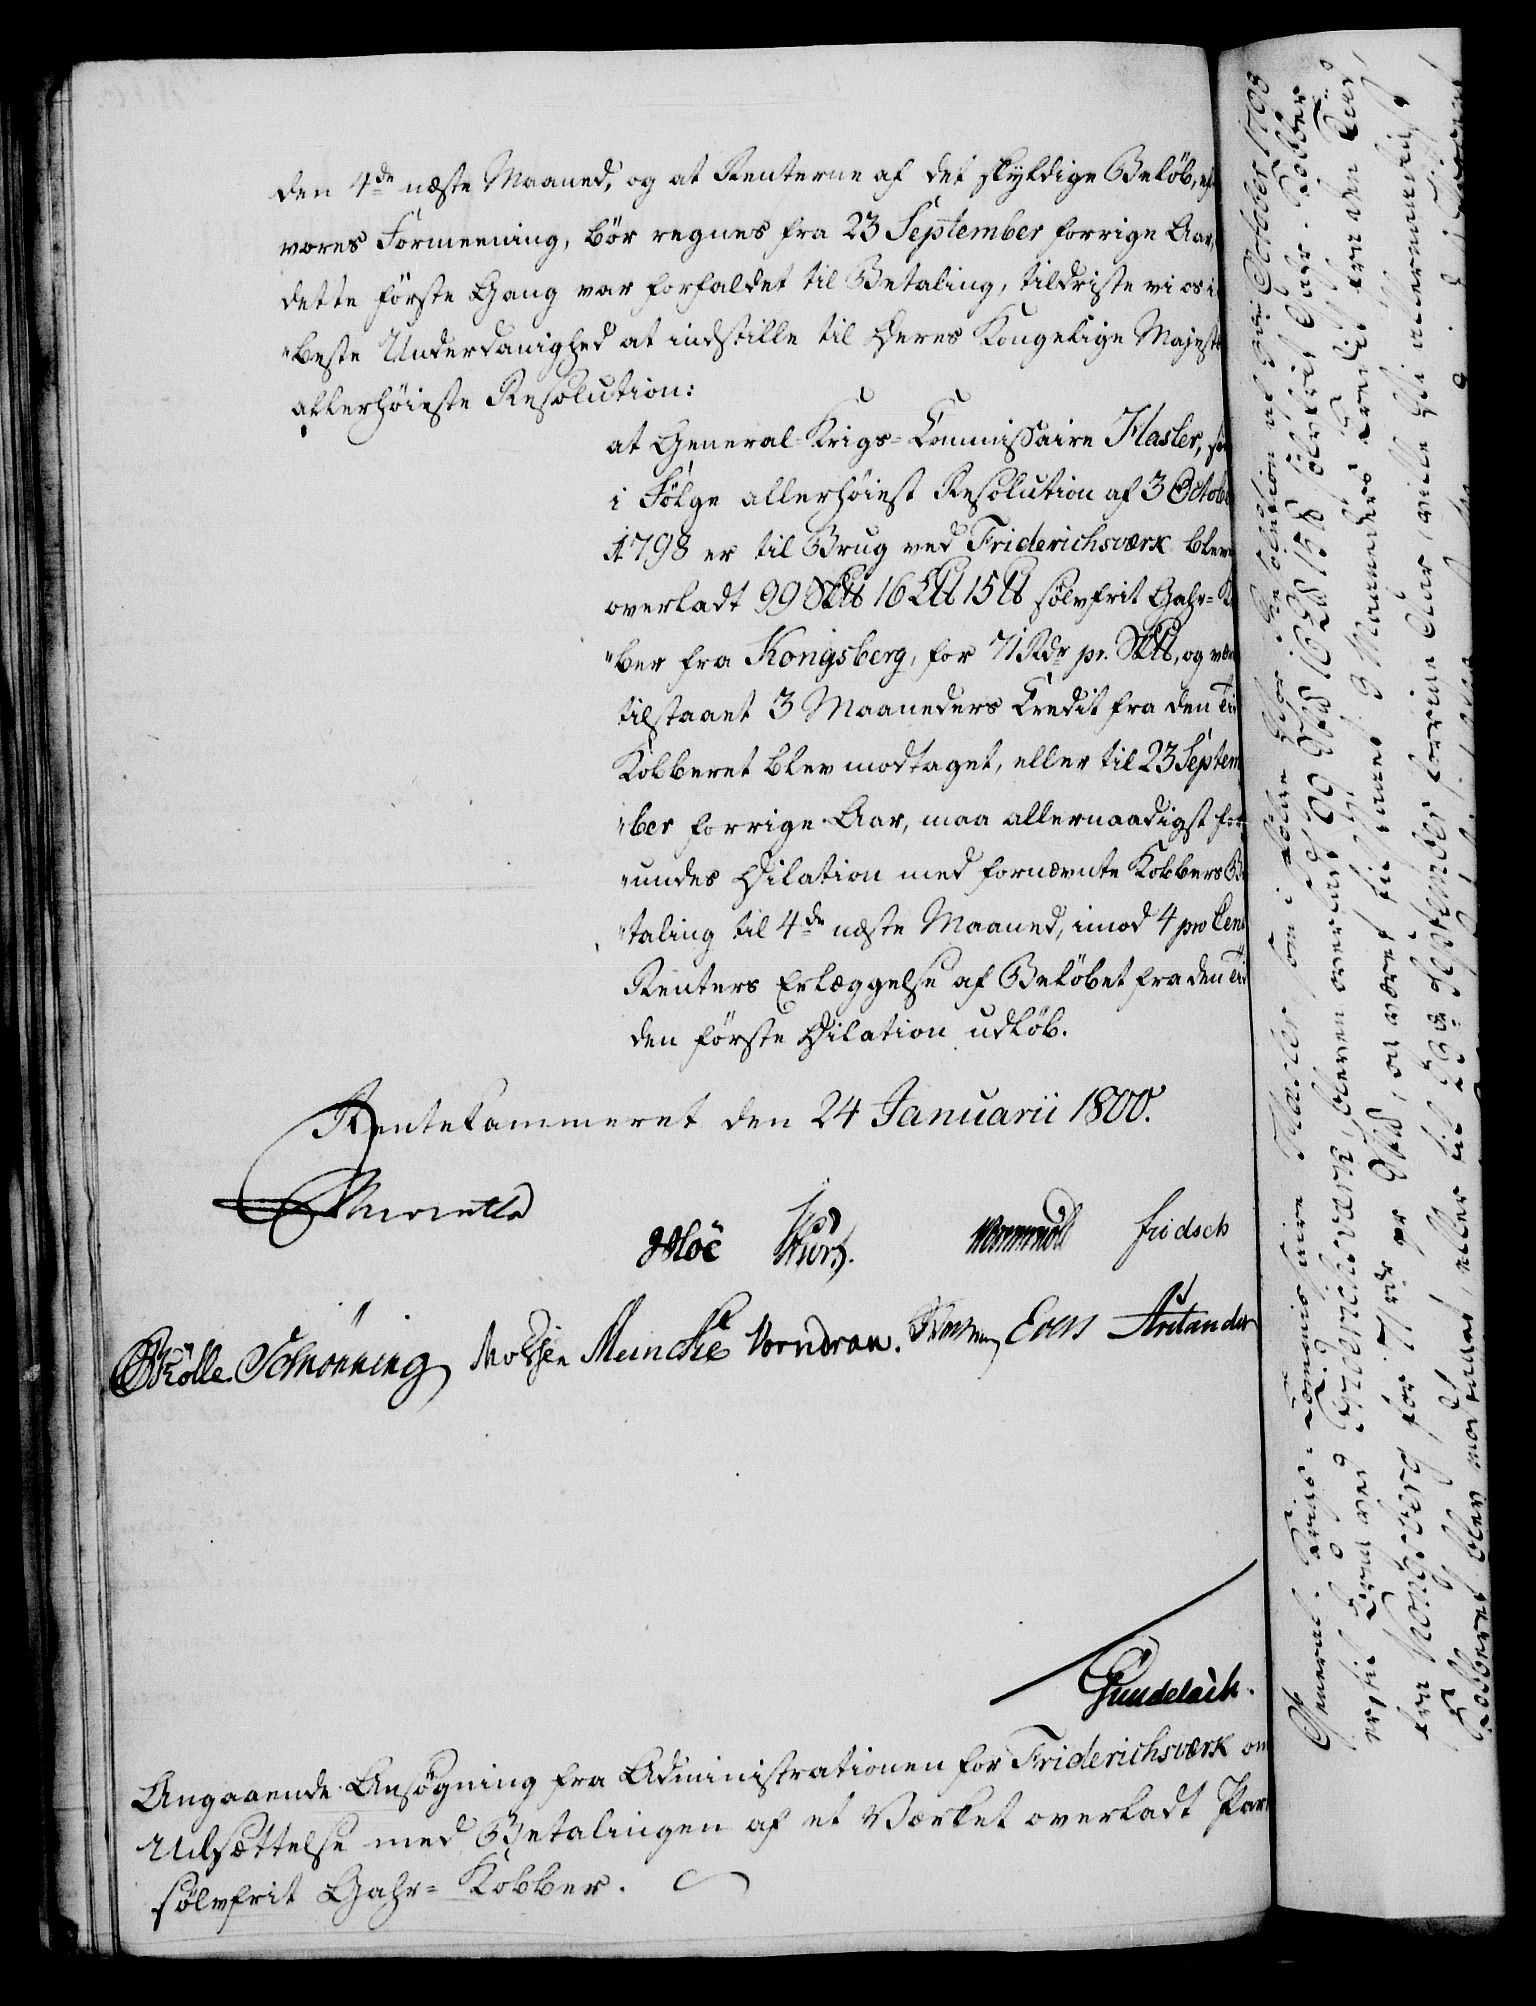 den 4de næste Maaned, og at Renterne af det skyldige Beløb,
vores Formeening, bør regnes fra 23 September forrige Aar,
dette første Gang var forfaldet til Betaling, tildriste vi os i
"beste Underdanighed at indstille til Deres Kongelige Majest
allerhøieste Resolution:
at General-Krigs-Commissaire Hasler,
i Følge allerhøiest Resolution af 3 Octob
1798 er til Brug ved Friderichsværk bleve
overladt 99 S℔ 16 L℔ 15 ℔ sølvfrit Gahr-K
"ber fra Kongsberg, for 71 Rdr pr. S℔, og
tilstaaet 3 Maaneders Credit fra den Ti
Kobberet blev modtaget, eller til 23 Septem
"ber forrige Aar, maa allernaadigst for
"undes Dilation med fornævnte Kobbers Be
"taling til 4de næste Maaned, imod 4 pro Cent
Renters Erlæggelse af Beløbet fra den Ti
den første Dilation udløb.
Rentekammeret den 24 Januarii 1800.
Schønning Meincke Vorndran.
Gundelach.
Angaaende Ansøgning fra Administrationen for Friderichsværk om
Udsættelse med Betalingen af et Værket overladt Par
sølvfrit Gahr-Kobber.
General-Krigs-Commissaire Hasler, som i Følge Resolution af 3die October 1798
er til Brug ved Friderichsværk, bleven overladt 99 S℔ 16 L℔ 15 ℔ sølvfrit Gahr-Kobber
fra Kongsberg for 71 rdr pr S℔, og været tilstaaet 3 Maaneders Credit fra den Tid,
Kobberet blev modtaget, eller til 23de September forrige Aar, ville Vi allernaadigst